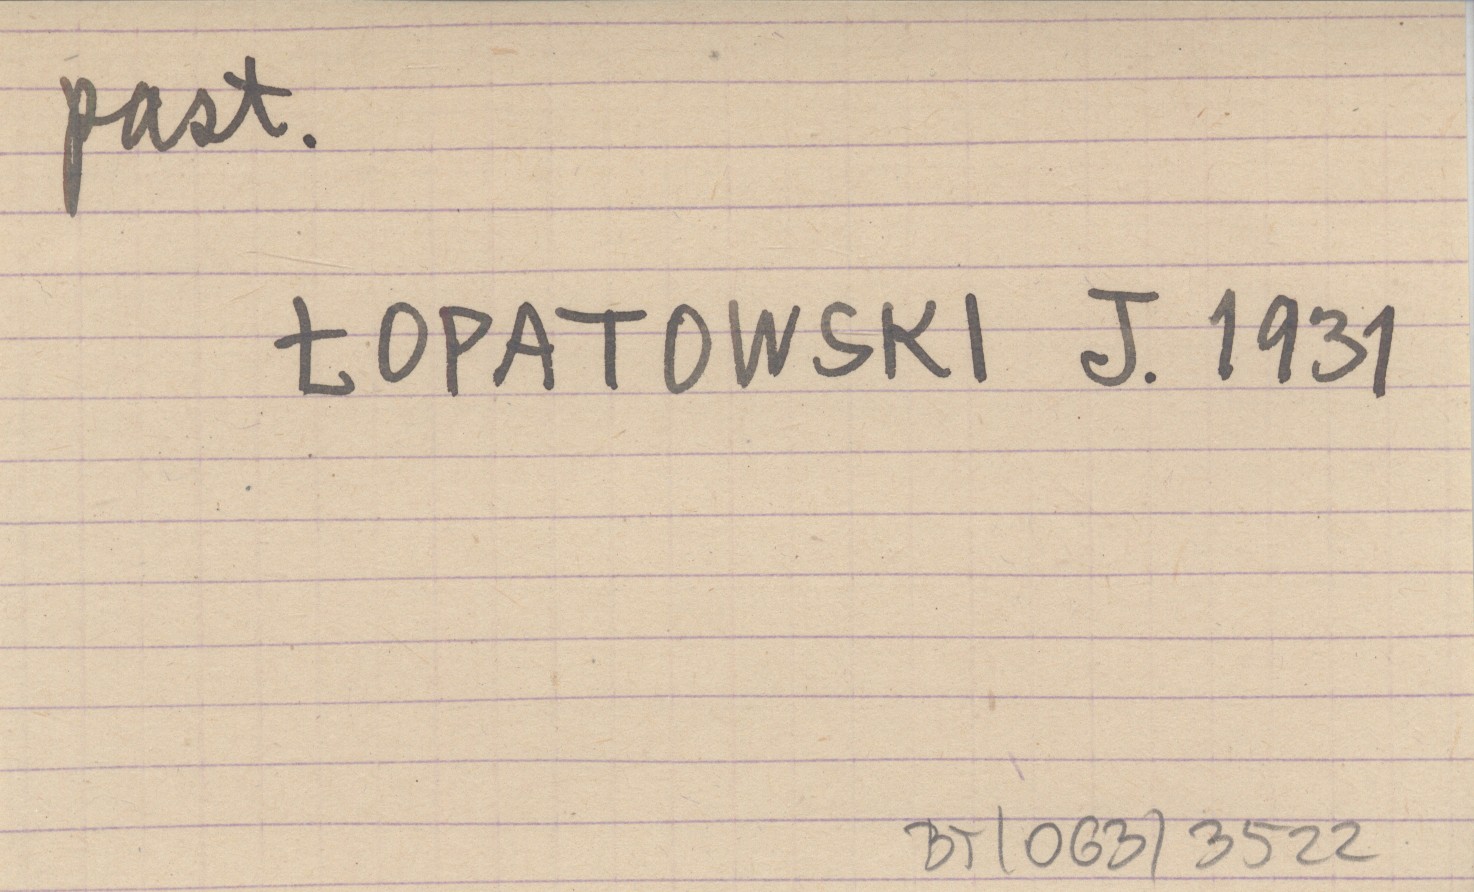 past.
ŁOPATOWSKI J. 1931
BT(063) 3522